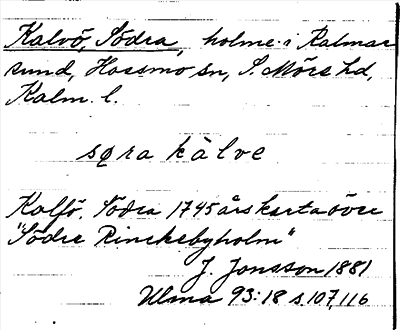 Kalvö, Södra, holme i Kalmar
sund, Hossmo sn, S. Möre hd,
Kalm. l.
søra kàlve
Kalfö, Södra 1745 års karta över
"Södre Rinckebyholm"
J. Jonsson 1881
Ulma 93:18 s. 107, 116